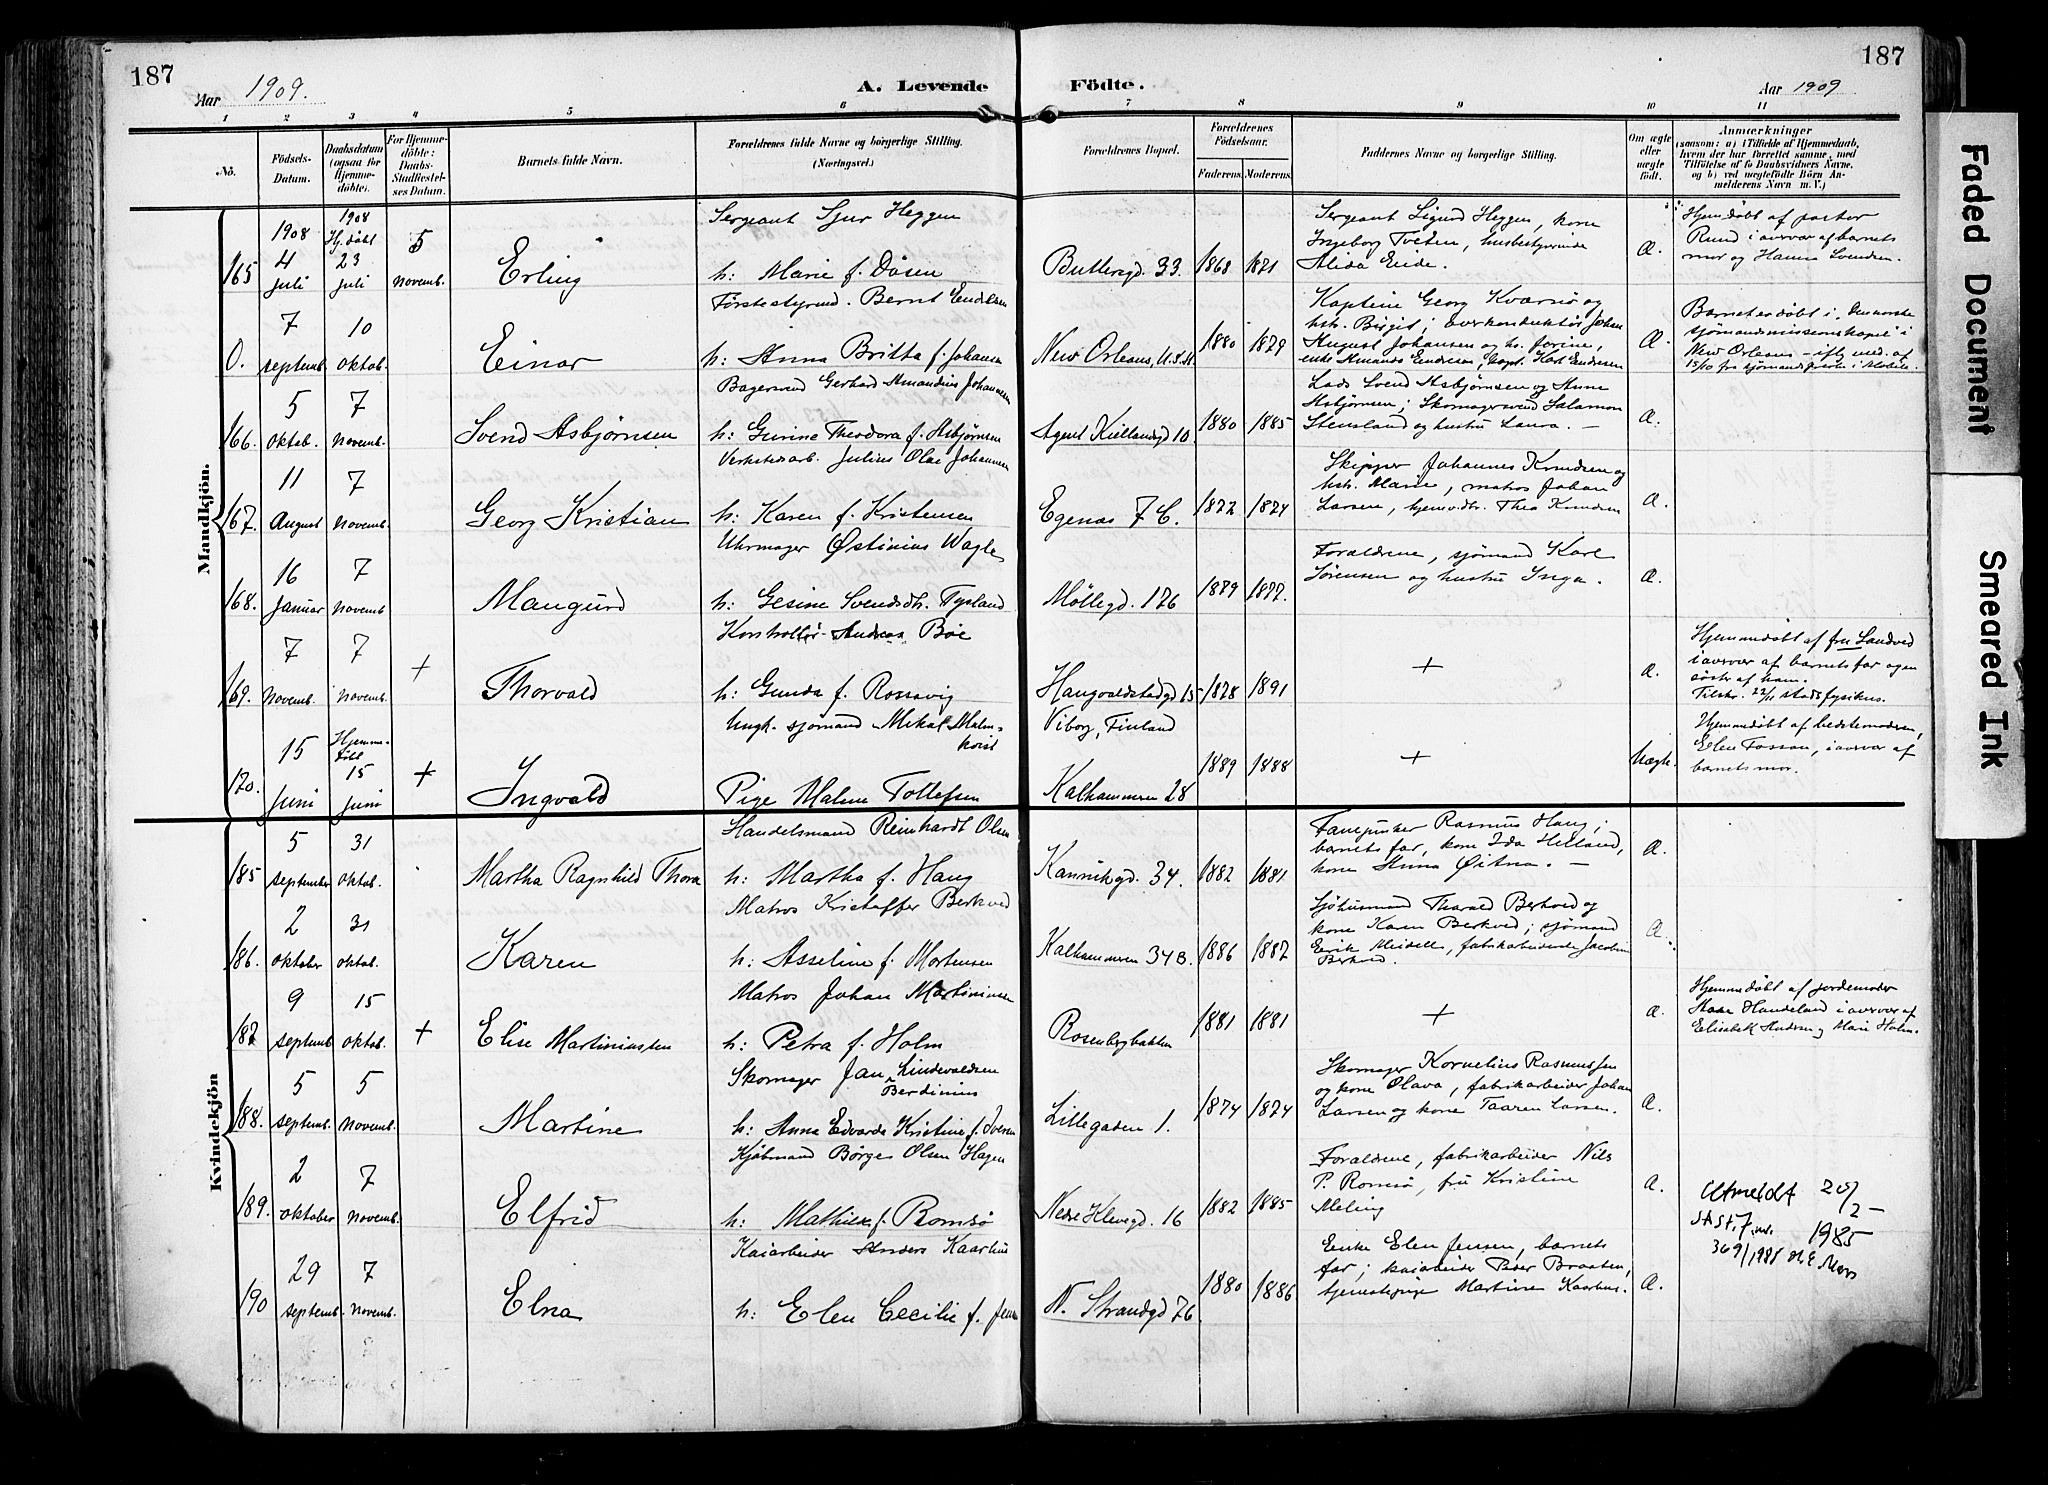 187
Aar 1909.
A. Levende
Födte.
187
Aar 1909
1 2 3 4 5 6 7 8 9 10 11
No.
Födsels-Datum.
Daabsdatum (ogsaa for Hjemme-döbte).
For Hjemme-döbte: Daabs-Stadfæstel-ses Datum.
Barnets fulde Navn.
Forældrenes fulde Navne og borgerlige Stilling. (Næringsvei.)
Forældrenes Bopæl.
Forældrenes Födselsaar.
Faderens. Moderens.
Faddernes Navne og borgerlige Stilling.
Om ægte eller uægte födt.
Anmærkninger
(saasom: a) i Tilfælde af Hjemmedaab, hvem der har forrettet samme, med Tilföielse af to Daabsvidners Navne, og b) ved uægtefödte Börn An-melderens Navn m. V.)
Mandkjön.
165 1908 4 juli
1908 Hj.døbt 23 juli
5 novemb.
Erling
Sergeant Sjur Heggen
h: Marie f. Døsen
Butlersgd. 33.
1868 1871
Sergeant Sigurd Heggen, kone
Ingeborg Tveten, husbestyrerinde
Alida Ende.
Æ.
Hjemdøbt af pastor
Rund i overvær af barnets
mor og Hanna Svendsen.
0. 7 septemb. 10 oktob.
Einar
Førstestyrmd. Bernt Endresen
h: Anna Britta f. Johansen
New Orleans, U.S.A.
1880 1879
Kaptein Georg Kværnø og
hst. Birgit; overkonduktør Johan
August Johansen og h. Jorine,
enke Amanda Endresen, kapt. Karl Endresen
Æ.
Barnet er døbt i "Den norske
sjømandsmissions kapel" i
New Orleans – iflg. med. af
15/10 fra sjømandspræsten i Mobile.
166. 5 oktob. 7 novemb.
Svend Asbjørnsen
Bagersvend Gerhard Amandius Johannesen
h: Gurine Theodora f. Asbjørnsen
Agent Kiellandsgd 10.
1880 1885
Lods Svend Asbjørnsen og Anne
Asbjørnsen; Skomagersvend Salamon
Stensland og hustru Laura. –
Æ.
167. 11 August 7 novemb.
Georg Kristian
Verkstedsarb. Julius Olai Johannesen
h: Karen f. Kristensen
Egenæs 7 C.
1872 1874
Skipper Johannes Knudsen og
hst. Marie, matros Johan
Larsen, hjemvdtr. Thea Knudsen
Æ.
168. 16 Januar 7 novemb.
Mangurd
Uhrmager Østinius Wagle
h: Gesine Svendsdtr. Tysland
Møllegd. 176
1879 1877.
Forældrene, sjømand Karl
Sørensen og hustru Inga.
Æ.
169. 7 novemb. 7 novemb. +
Thorvald
Kontrollør Andreas Bøe
h: Gunda f. Rossavig
Haugvaldstadgd 15
1878 1891
+
Æ.
Hjemmedøbt af fru Sandved
i overvær af barnets far og en
søstr af ham.
Tilstr. 22/11 stadsfysikus.
170. 15 Juni
Hjemme-døbt 15 juni
+
Ingvald
Ungk. sjømand Mikal Malm-
kvist
Pige Malene Tollefsen
Viborg, Finland
Kalhammeren 28
1889 1888
+
Uægte.
Hjemmedøbt af bedstemoderen,
Elen Tossan, i overvær af
barnets mor.
Kvindekjön
185 5 september 31 oktob.
Martha Ragnhild Thora
Handelsmand Reinhardt Olsen
h: Martha f. Haug
Kannikgd. 34.
1882 1881
Fanejunker Rasmus Haug;
barnets far, kone Ida Helland,
kone Anna Østna. –
Æ.
186. 2 oktober 31 oktob.
Karen
Matros Kristoffer Berkved
h: Asseline f. Mortensen
Kalhammeren 34 B.
1886 1887
Sjøhusmand Tharald Berkved og
kone Karen Berkved; sjømand
Eerik Meidell, fabrikarbeiderske Jacobine
Berkved.
Æ.
187 9 septemb 15 oktob. +
Elise Martiniussen
Matros Johan Martiniussen
h: Petra f. Holm
Rosenbergbakken
1881 1881
+
Æ.
Hjemmedøbt af jordemoder
Maren Handeland i overvær af
Elisabeth Andersen og Marie Holm.
188. 5 septemb. 5 novemb.
Martine
Skomager Jan Lindevaldsen
Berdinius
h: Anna Edvarda Kristine f. Iversen
Lillegaden 1.
1874 1874
Skomager Kornelius Rasmussen
og kone Olava, fabrikarbeider Johan
Larsen og kone Taaren Larsen.
Æ.
189. 2 oktober 7 novemb.
Elfrid
Kjøbmand Børge Olsen Hagen
h: Mathilde f. Romsø
Nedre Klevegd. 16
1882 1885
Forældrene, fabrikarbeider Nils
P. Romsø, fru Kristine
Meling
Æ.
Utmeldt 20/2 –
1985
369/1985
190 29 septemb. 7 novemb.
Elna
Kaiarbeider Anders Kaarhus
h: Elen Cecilie f. Jensen
N. Strandgd 76
1880 1886
Enke Elen Jensen, barnets
far; kaiarbeider Peder Braaten,
tjenestepige Martine Kaarhus.
Æ.
Faded Document
Smeared Ink